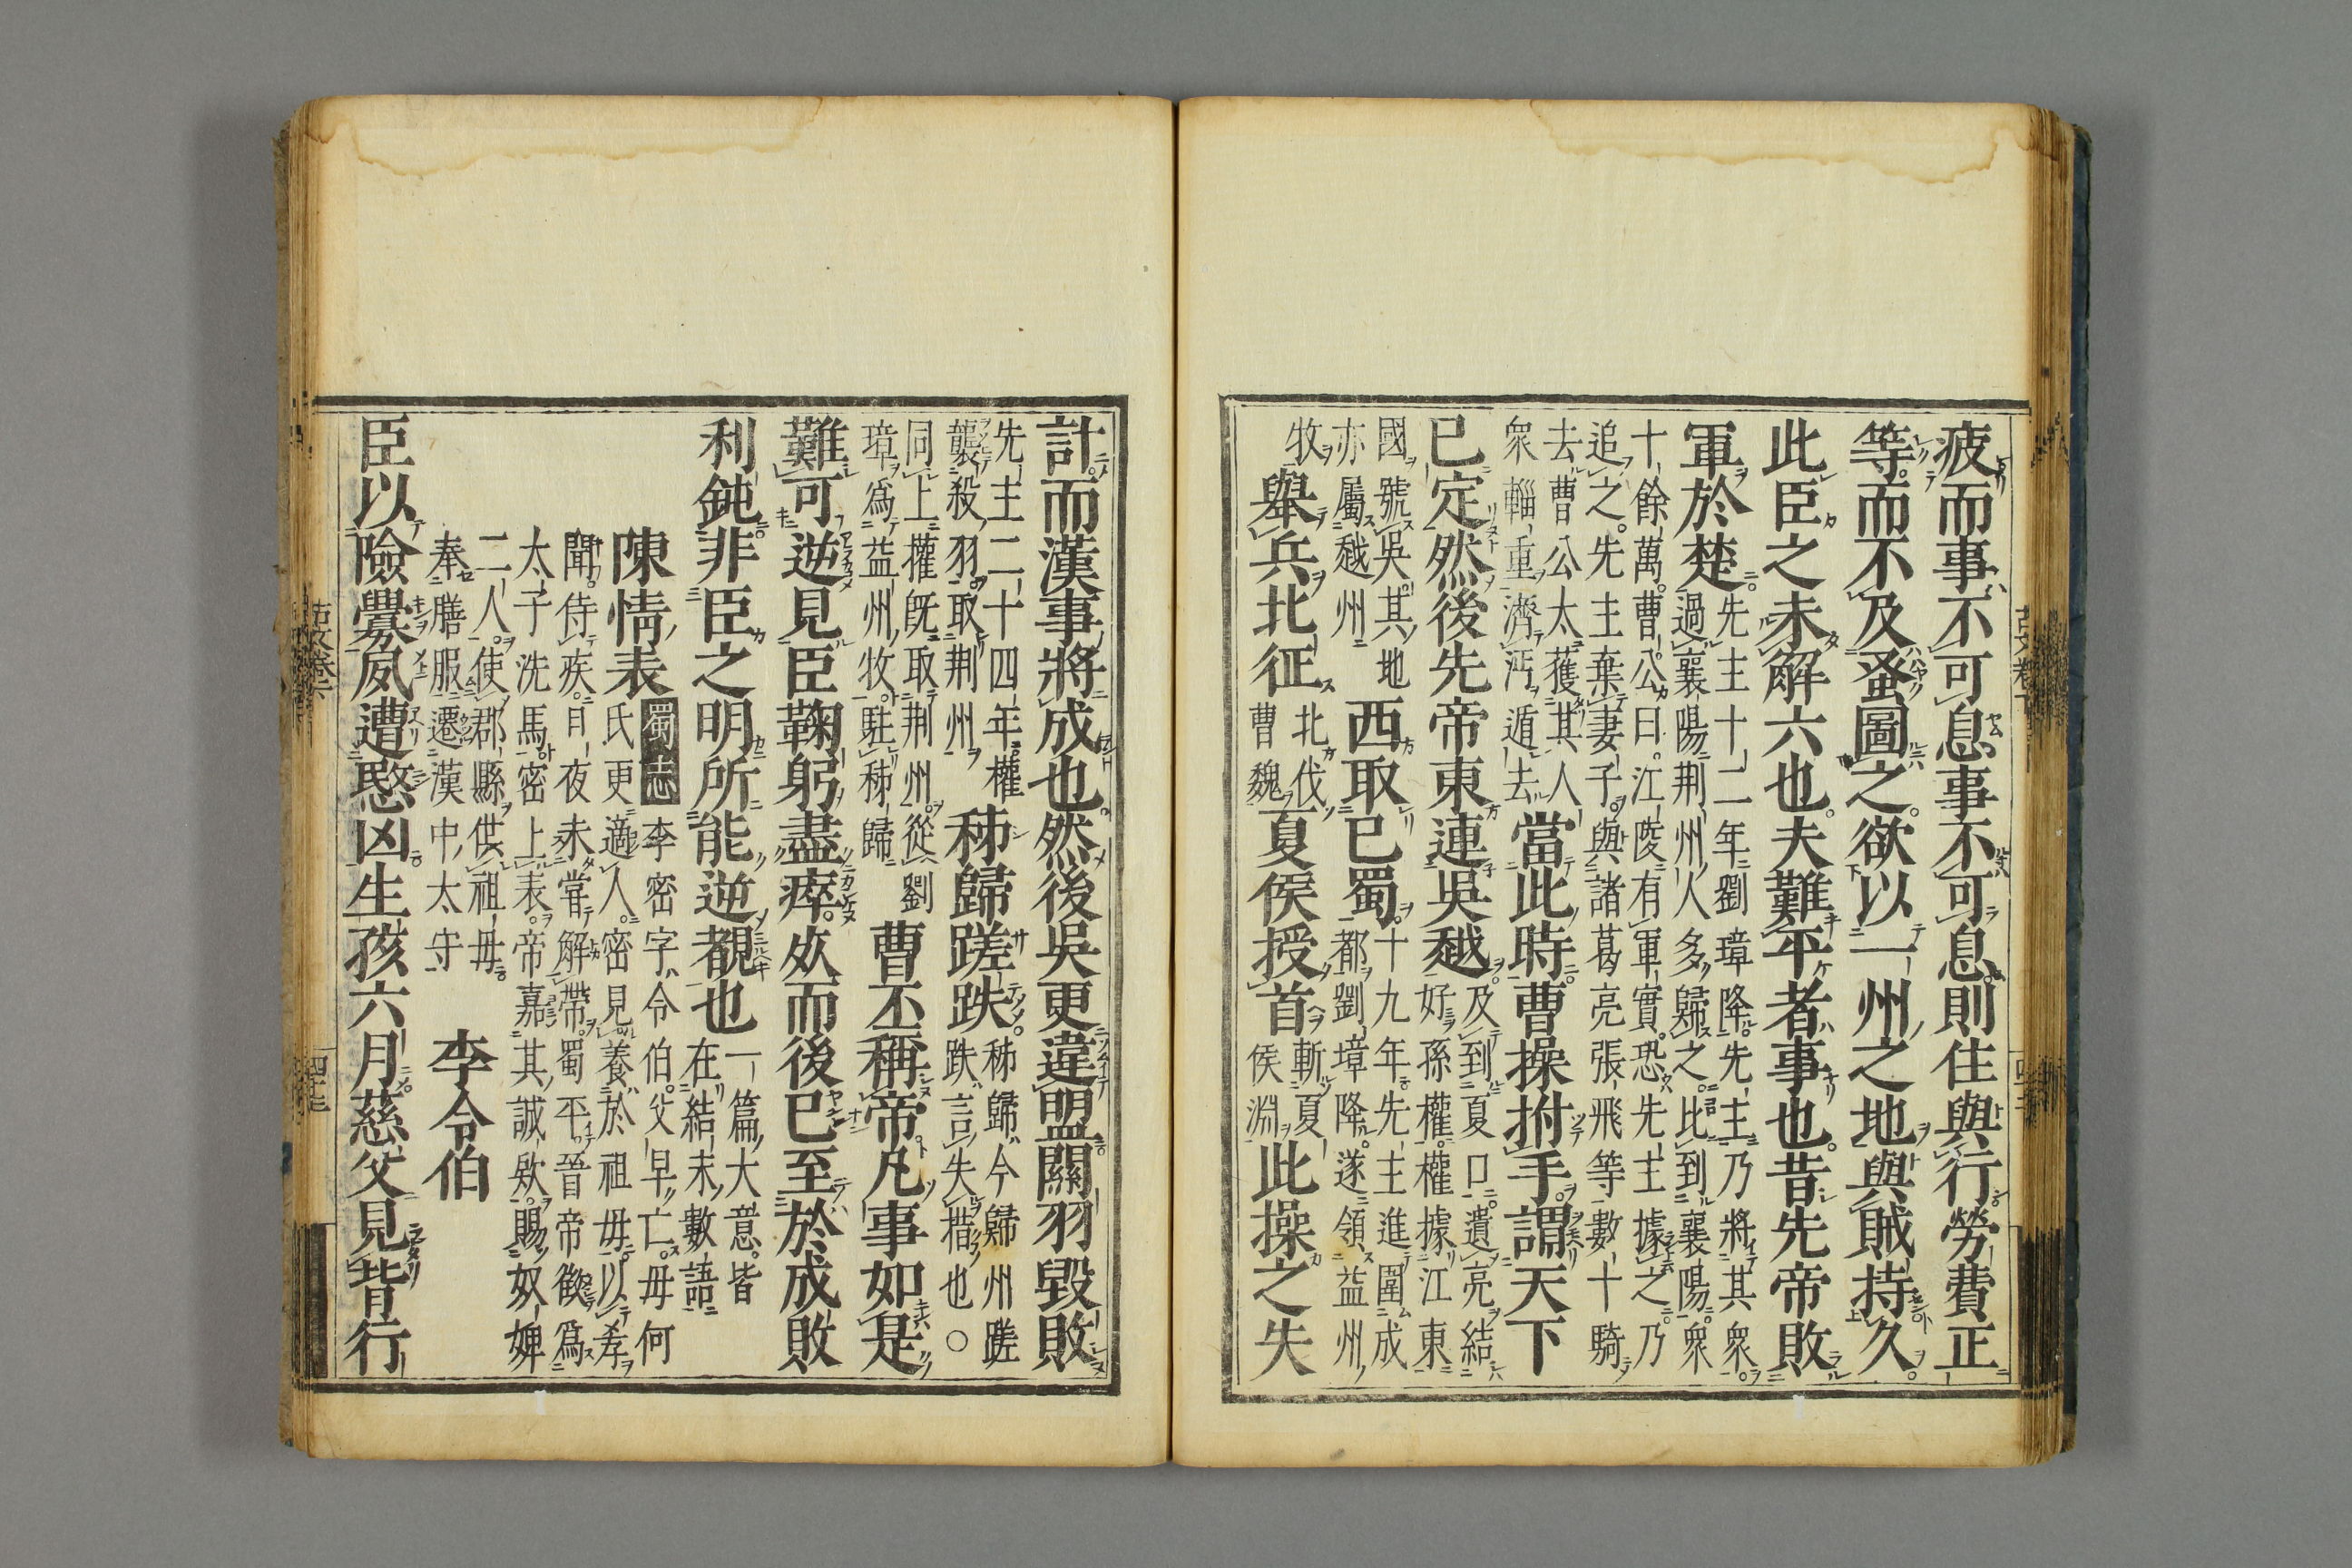 疲而事不可息事不可息則住與行勞費正
等而不及蚤圖之欲以一州之地與賊持久
此臣之未解六也夫難平者事也昔先帝敗
軍於楚
先主十二年劉璋降先主乃將其衆
過襄陽荆州人多歸之比到襄陽衆
十餘萬曹公曰江陵有軍實恐先主據之乃
追之先主棄妻子與諸葛亮張飛等數十騎
去曹公太獲其人
衆輜重濟沔遁去
當此時曹操拊手謂天下
已定然後先帝東連吳越
及到夏口遺亮結
好孫權權據江東
國號吳其地
亦屬越州
西取巴蜀
十九年先主進圍成
都劉璋降遂領益州
牧
舉兵北征
北伐
曹魏
夏侯授首
斬夏
侯淵
此操之失
計而漢事將成也然後吳更違盟關羽毀敗
先主二十四年權
襲殺羽取荆州
秭歸蹉跌
秭歸今歸州蹉
跌言失措也○
同上權既取荆州從劉
璋爲益州牧駐秭歸
曹丕稱帝凡事如是
難可逆見臣鞠躬盡瘁死而後已至於成敗
利鈍非臣之明所能逆覩也
一篇大意皆
在結末數語
陳情表
蜀志
李密字令伯父早亡毋何
氏更適人密見養於祖毋以孝
聞侍疾日夜未甞解帶蜀平晉帝徵爲
太子洗馬密上表帝嘉其誠欵賜奴婢
二人使郡縣供祖毋
奉膳服遷漢中太守
李令伯
臣以險釁夙遭愍凶生孩六月慈父見背行